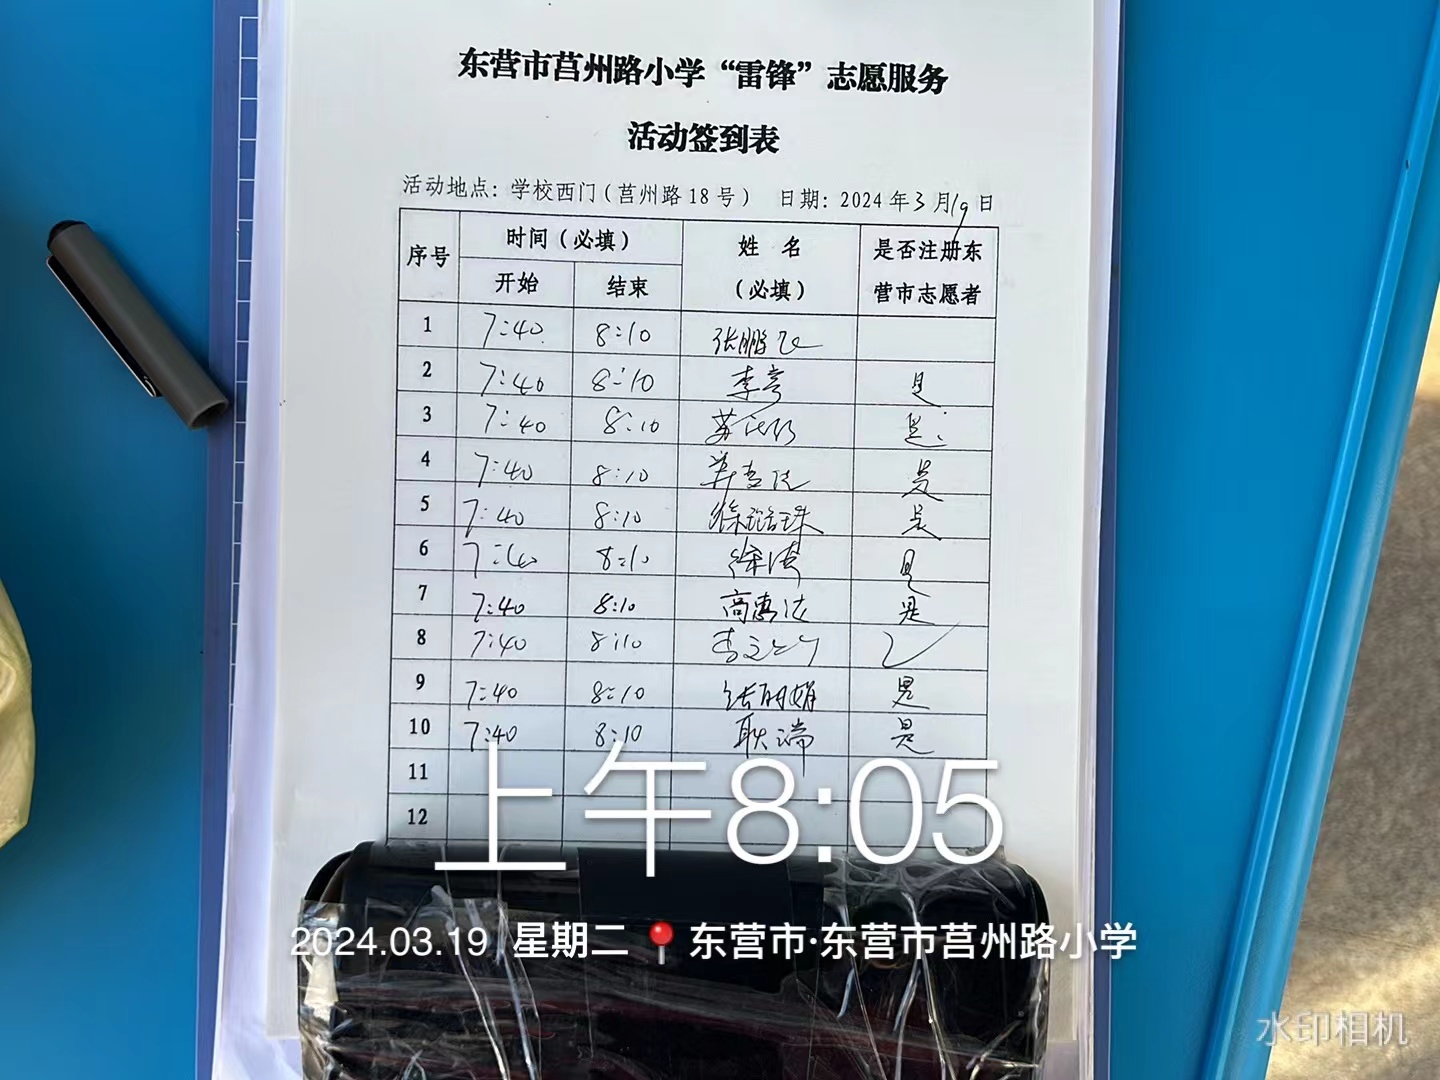 东营市莒州路小学“雷锋”志愿服务
活动签到表
活动地点：学校西门（莒州路18号） 日期：2024年3月19日
序号 时间（必填） 姓 名 是否注册东
开始 结束 （必填） 营市志愿者
1 7:40 8:10 张鹏飞
2 7:40 8:10 李 是
3 7:40 8:10 苏 是
4 7:40 8:10 是
5 7:40 8:10 徐 珠 是
6 7:40 8:10 徐涛 是
7 7:40 8:10 高惠 是
8 7:40 8:10 李 ✓
9 7:40 8:10 张丽娟 是
10 7:40 8:10 耿端 是
11
12
上午8:05
2024.03.19 星期二 东营市·东营市莒州路小学
水印相机